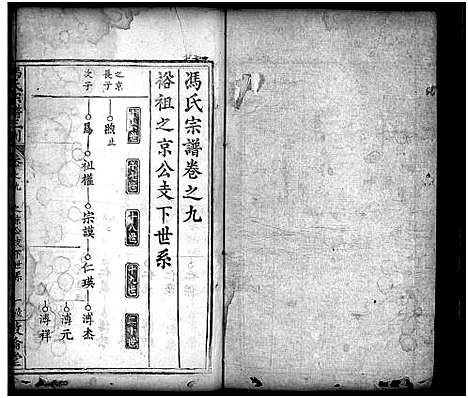 馮氏宗譜卷之九
裕祖之京公支下世系
十八世
十九世
二十世
之京
長子
煦止
次子
爲
祉權
宗謨
仁瑛
溥杰
溥元
溥祥
之京公支下世系